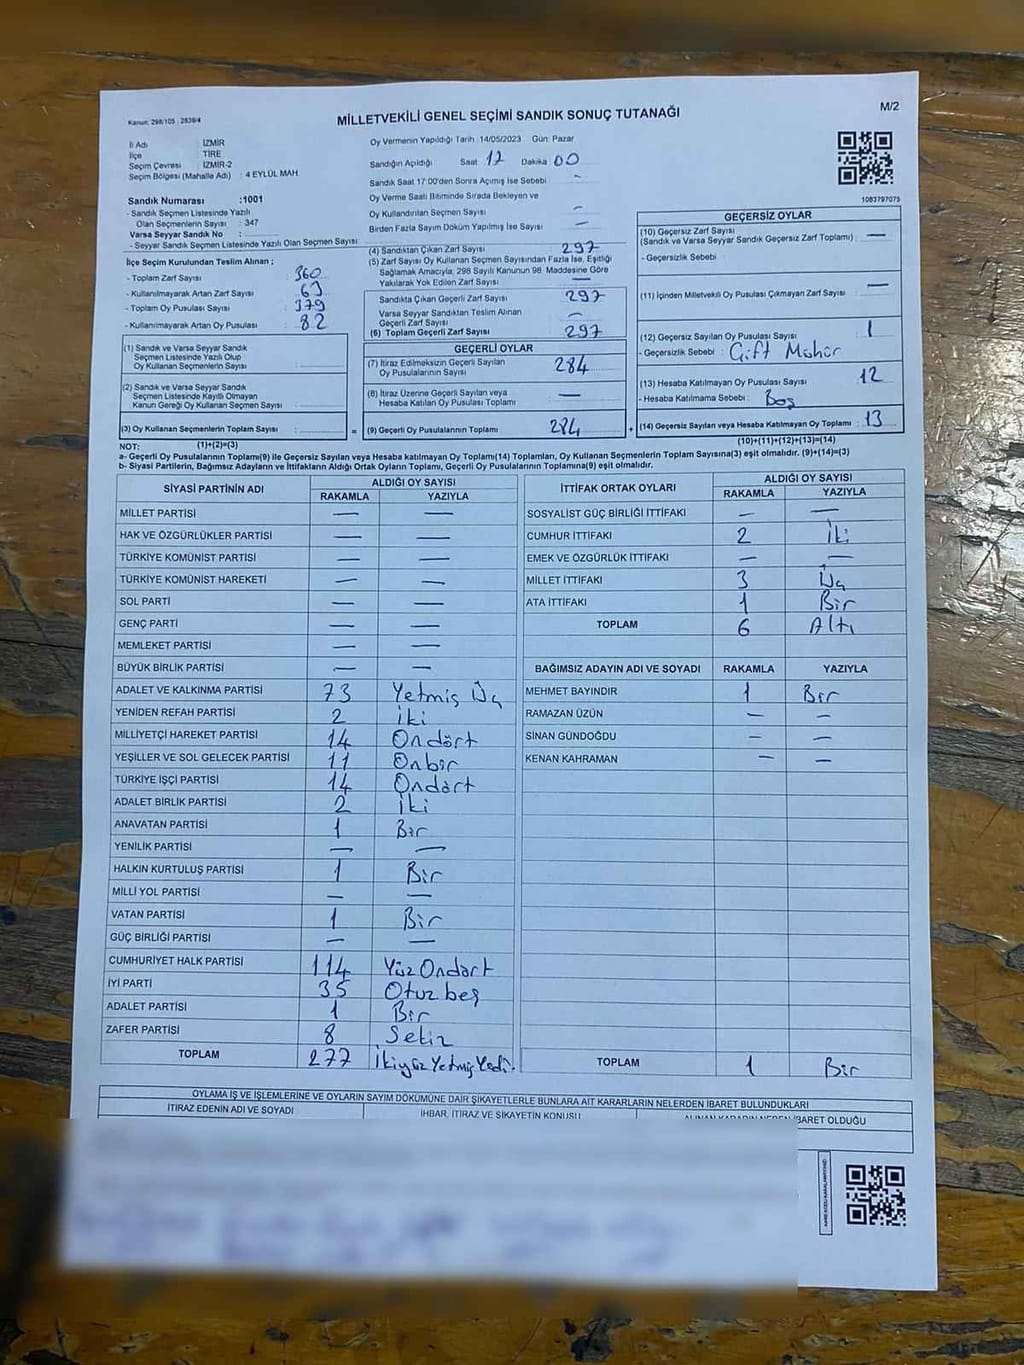 Kanun: 298/105 , 2839/4
MİLLETVEKİLİ GENEL SEÇİMİ SANDIK SONUÇ TUTANAĞI
M/2
İl Adı : İZMİR
İlçe : TİRE
Seçim Çevresi : İZMİR-2
Seçim Bölgesi (Mahalle Adı) : 4 EYLÜL MAH.
Oy Vermenin Yapıldığı Tarih : 14/05/2023 Gün: Pazar
Sandığın Açıldığı Saat 17 Dakika 00
Sandık Saat 17:00'den Sonra Açılmış İse Sebebi : -
Oy Verme Saati Bitiminde Sırada Bekleyen ve
Oy Kullandırılan Seçmen Sayısı : -
Birden Fazla Sayım Dökümü Yapılmış İse Sayısı : -
1083797075
Sandık Numarası :1001
- Sandık Seçmen Listesinde Yazılı
Olan Seçmenlerin Sayısı : 347
Varsa Seyyar Sandık No :
- Seyyar Sandık Seçmen Listesinde Yazılı Olan Seçmen Sayısı:
İlçe Seçim Kurulundan Teslim Alınan ;
- Toplam Zarf Sayısı : 360
- Kullanılmayarak Artan Zarf Sayısı : 63
- Toplam Oy Pusulası Sayısı : 379
- Kullanılmayarak Artan Oy Pusulası : 82
(1) Sandık ve Varsa Seyyar Sandık
Seçmen Listesinde Yazılı Olup
Oy Kullanan Seçmenlerin Sayısı :
(2) Sandık ve Varsa Seyyar Sandık
Seçmen Listesinde Kayıtlı Olmayan
Kanun Gereği Oy Kullanan Seçmen Sayısı :
(3) Oy Kullanan Seçmenlerin Toplam Sayısı :
(4) Sandıktan Çıkan Zarf Sayısı : 297
(5) Zarf Sayısı Oy Kullanan Seçmen Sayısından Fazla İse, Eşitliği
Sağlamak Amacıyla, 298 Sayılı Kanunun 98. Maddesine Göre
Yakılarak Yok Edilen Zarf Sayısı : —
Sandıkta Çıkan Geçerli Zarf Sayısı : 297
Varsa Seyyar Sandıktan Teslim Alınan
Geçerli Zarf Sayısı : —
(6) Toplam Geçerli Zarf Sayısı : 297
GEÇERLİ OYLAR
(7) İtiraz Edilmeksizin Geçerli Sayılan
Oy Pusulalarının Sayısı : 284
(8) İtiraz Üzerine Geçerli Sayılan veya
Hesaba Katılan Oy Pusulası Toplamı : —
= (9) Geçerli Oy Pusulalarının Toplamı : 284
GEÇERSİZ OYLAR
(10) Geçersiz Zarf Sayısı
(Sandık ve Varsa Seyyar Sandık Geçersiz Zarf Toplamı) : —
- Geçersizlik Sebebi :
(11) İçinden Milletvekili Oy Pusulası Çıkmayan Zarf Sayısı : —
(12) Geçersiz Sayılan Oy Pusulası Sayısı : 1
- Geçersizlik Sebebi : Çift Mühür
(13) Hesaba Katılmayan Oy Pusulası Sayısı : 12
- Hesaba Katılmama Sebebi : Boş
+ (14) Geçersiz Sayılan veya Hesaba Katılmayan Oy Toplamı : 13
NOT: (1)+(2)=(3)
(10)+(11)+(12)+(13)=(14)
a- Geçerli Oy Pusulalarının Toplamı(9) ile Geçersiz Sayılan veya Hesaba katılmayan Oy Toplamı(14) Toplamları, Oy Kullanan Seçmenlerin Toplam Sayısına(3) eşit olmalıdır. (9)+(14)=(3)
b- Siyasi Partilerin, Bağımsız Adayların ve İttifakların Aldığı Ortak Oyların Toplamı, Geçerli Oy Pusulalarının Toplamına(9) eşit olmalıdır.
SİYASİ PARTİNİN ADI ALDIĞI OY SAYISI
RAKAMLA YAZIYLA
MİLLET PARTİSİ — —
HAK VE ÖZGÜRLÜKLER PARTİSİ — —
TÜRKİYE KOMÜNİST PARTİSİ — —
TÜRKİYE KOMÜNİST HAREKETİ — —
SOL PARTİ — —
GENÇ PARTİ — —
MEMLEKET PARTİSİ — —
BÜYÜK BİRLİK PARTİSİ — —
ADALET VE KALKINMA PARTİSİ 73 Yetmiş Üç
YENİDEN REFAH PARTİSİ 2 İki
MİLLİYETÇİ HAREKET PARTİSİ 14 Ondört
YEŞİLLER VE SOL GELECEK PARTİSİ 11 Onbir
TÜRKİYE İŞÇİ PARTİSİ 14 Ondört
ADALET BİRLİK PARTİSİ 2 İki
ANAVATAN PARTİSİ 1 Bir
YENİLİK PARTİSİ — —
HALKIN KURTULUŞ PARTİSİ 1 Bir
MİLLİ YOL PARTİSİ — —
VATAN PARTİSİ 1 Bir
GÜÇ BİRLİĞİ PARTİSİ — —
CUMHURİYET HALK PARTİSİ 114 Yüz Ondört
İYİ PARTİ 35 Otuz beş
ADALET PARTİSİ 1 Bir
ZAFER PARTİSİ 8 Sekiz
TOPLAM 277 İkiyüz Yetmiş Yedi.
İTTİFAK ORTAK OYLARI ALDIĞI OY SAYISI
RAKAMLA YAZIYLA
SOSYALİST GÜÇ BİRLİĞİ İTTİFAKI — —
CUMHUR İTTİFAKI 2 İki
EMEK VE ÖZGÜRLÜK İTTİFAKI — —
MİLLET İTTİFAKI 3 Üç
ATA İTTİFAKI 1 Bir
TOPLAM 6 Altı
BAĞIMSIZ ADAYIN ADI VE SOYADI RAKAMLA YAZIYLA
MEHMET BAYINDIR 1 Bir
RAMAZAN ÜZÜN — —
SİNAN GÜNDOĞDU — —
KENAN KAHRAMAN — —
TOPLAM 1 Bir
OYLAMA İŞ VE İŞLEMLERİNE VE OYLARIN SAYIM DÖKÜMÜNE DAİR ŞİKAYETLERLE BUNLARA AİT KARARLARIN NELERDEN İBARET BULUNDUKLARI
İTİRAZ EDENİN ADI VE SOYADI İHBAR, İTİRAZ VE ŞİKAYETİN KONUSU ALINAN KARARIN NEDEN İBARET OLDUĞU